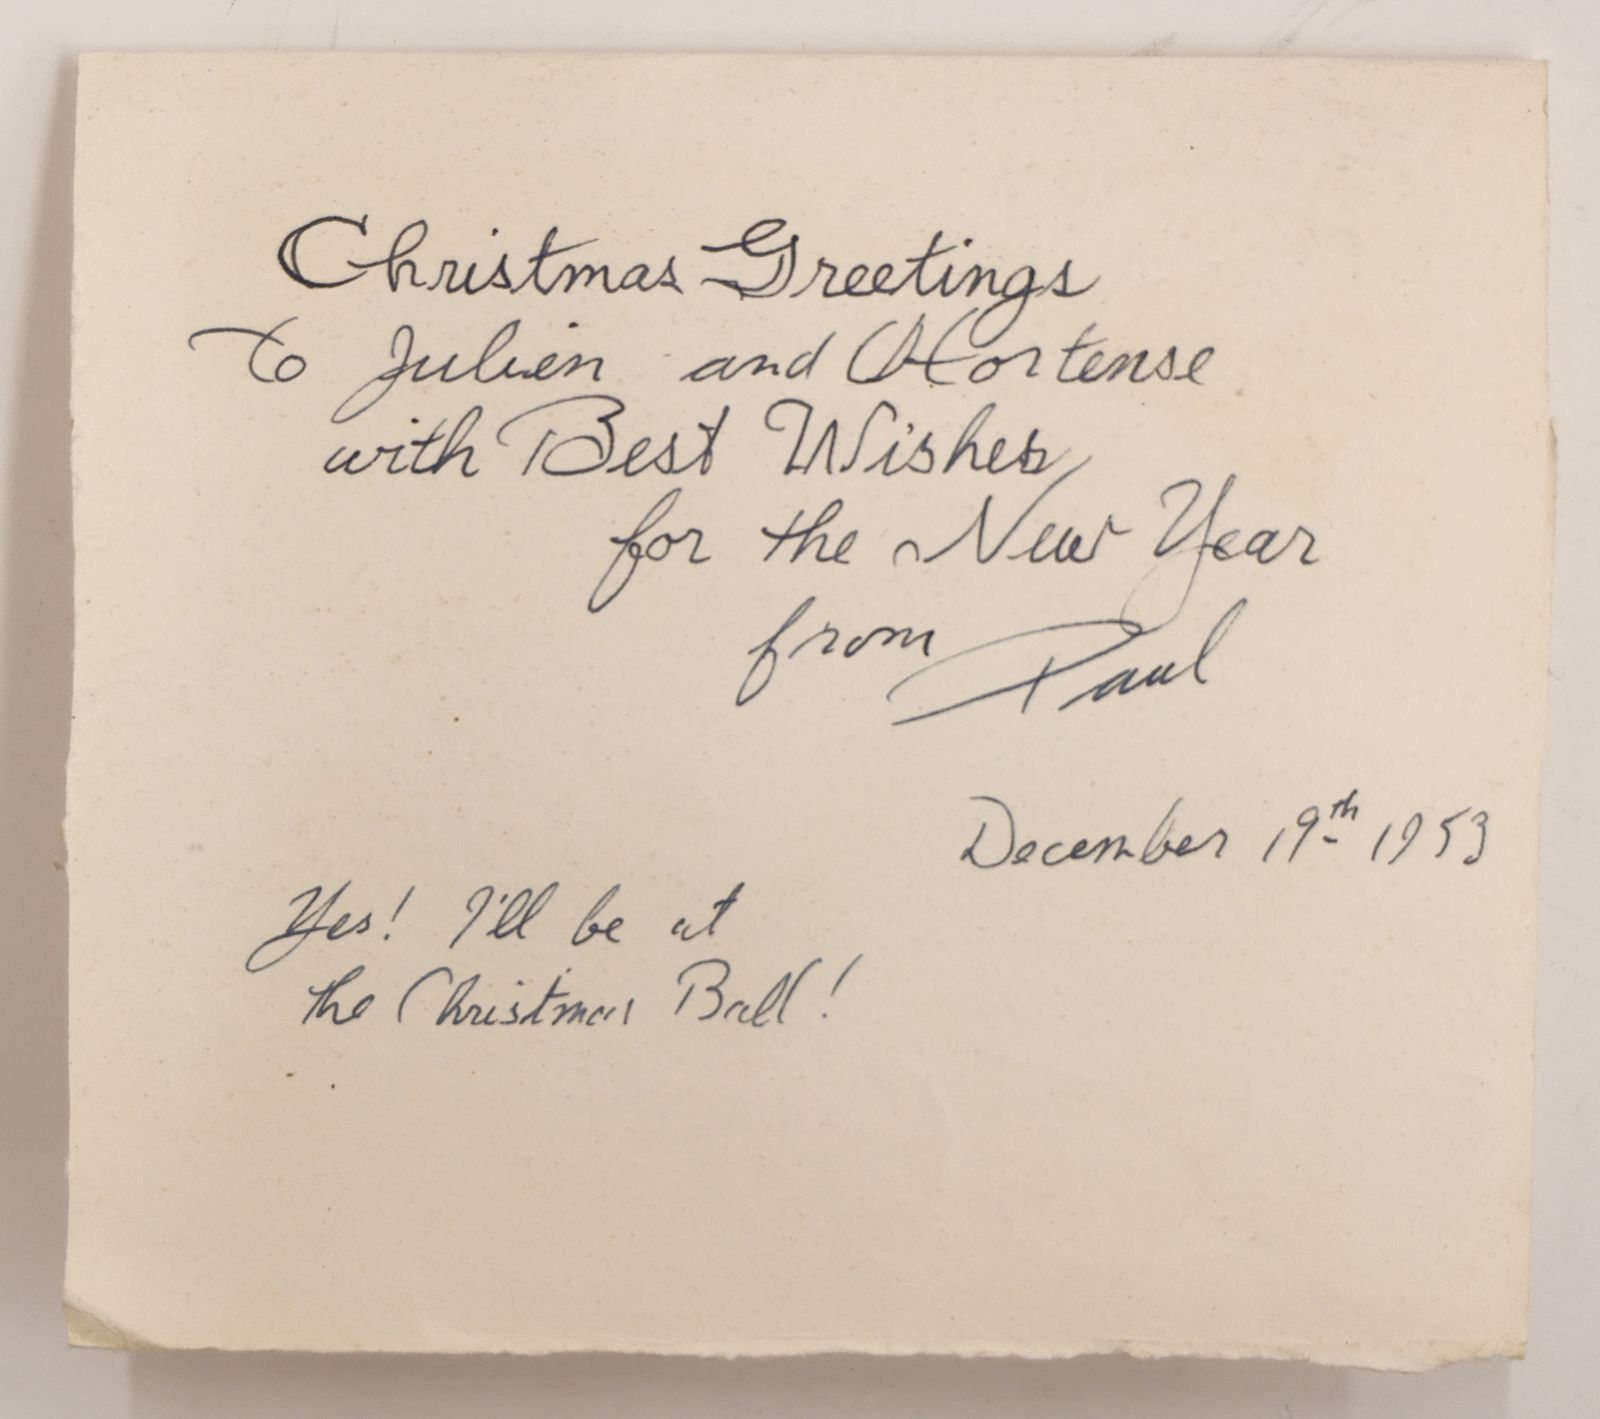 Christmas Greetings
To Julien and Hortense
with Best Wishes
for the New Year
from Paul
December 19th 1953
Yes! I'll be at
the Christmas Ball!